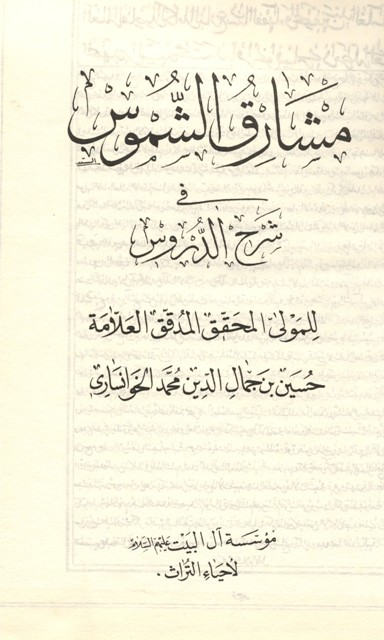 مشارق الشموس
في
شرح الدروس
للمولى المحقق المدقق العلامة
حسين بن جمال الدين محمد الخوانساري
مؤسسة آل البيت عليهم السلام
لأحياء التراث.